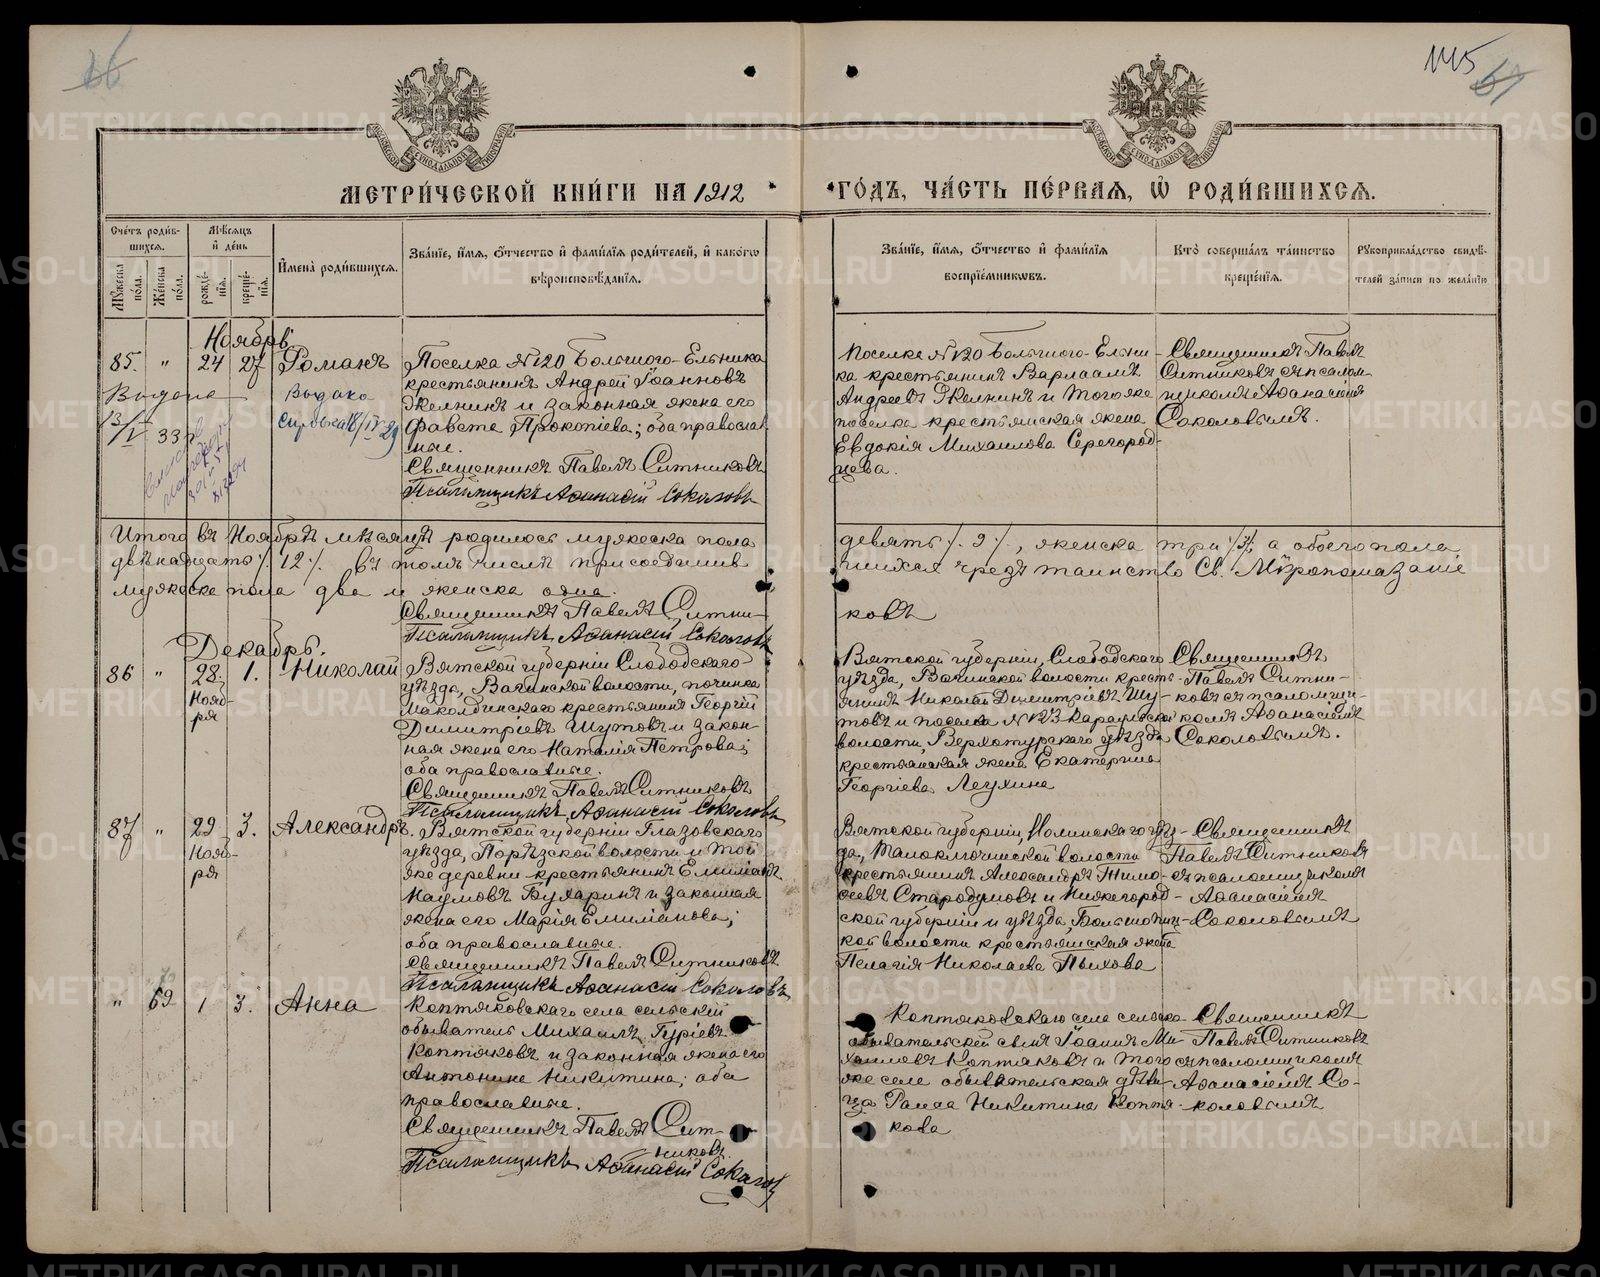 МЕТРИ́ЧЕСКОЙ КНИ́ГИ НА 1912
ГО́ДЪ, ЧА́СТЬ ПЕ́РВАЯ, Ѽ РОДИ́ВШИХСЯ.
145
Сче́тъ роди́в-
шихся.
Мѣ́сяцъ
и҆ де́нь
Му́жеска по́ла.
Же́нска по́ла.
рожде́-
нїя.
креще́-
нїя.
И҆мена̀ роди́вшихся.
Зва́нїе, и҆́мя, ѻ҆́тчество и҆ фамѝлїя роди́телей, и҆ како́гѡ
вѣроисповѣ́данїя.
Зва́нїе, и҆́мя, ѻ҆́тчество и҆ фамѝлїя
воспрїе́мникѡвъ.
Кто̀ соверша́лъ та́инство
креще́нїя.
Рꙋкоприкла́дство свидѣ́-
телей за́писи по жела́нїю
Ноябрь
85. " 24 27 Романъ
Поселка №120 Большого-Ельника
крестьянинъ Андрей Іоанновъ
и законная жена его
Прокопіева; оба православ
ные.
Священникъ Павелъ Ситниковъ
Псаломщикъ Аѳанасій Соколовъ
Поселка №120 Большого-Ельни-
ка крестьянинъ Варлаамъ
Андреевъ и того же
поселка крестьянская жена
Евдокія Михаилова Серегород-
цева.
Священникъ Павелъ
Ситниковъ съ псалом
щикомъ Аѳанасіемъ
Соколовымъ.
Выдана
Итого въ Ноябрѣ мѣсяцѣ родилось мужеска пола
девять /. 9 /., женска три /. 3 /. а обоего пола
двѣнадцать /. 12 /. въ томъ числѣ присоединив
шихся чрезъ таинство Св. Мѵропомазаніе
мужеска пола два и женска одна.
Священникъ Павелъ Ситни-
ковъ
Псаломщикъ Аѳанасій Соколовъ
Декабрь.
86 " 28. Нояб-
ря
1. Николай
Вятской губерніи Слободского
уѣзда, волости, починка
крестьянинъ Георгій
Димитріевъ Шутовъ и закон-
ная жена его Наталія Петрова;
оба православные.
Священникъ Павелъ Ситниковъ
Псаломщикъ Аѳанасій Соколовъ
Вятской губерніи, Слободского
уѣзда, волости кресть-
янинъ Николай Димитріевъ Шу-
товъ и поселка №123
волости, Верхотурского уѣзда
крестьянская жена Екатерина
Георгіева
Священникъ
Павелъ Ситни-
ковъ съ псаломщи-
комъ Аѳанасіемъ
Соколовымъ.
87 " 29 Нояб-
ря
3. Александръ.
Вятской губерніи Глазовскаго
уѣзда, Порѣзской волости и той
же деревни крестьянинъ Емиліанъ
Наумовъ Бухаринъ и законная
жена его Марія Емиліанова;
оба православные.
Священникъ Павелъ Ситниковъ
Псаломщикъ Аѳанасій Соколовъ
Вятской губерніи, Нолинскаго уѣз-
да, волости
крестьянинъ Александръ Тимо-
ѳеевъ Стародумовъ и Нижегород-
ской губерніи и уѣзда,
кой волости крестьянская жена
Пелагія Николаева Пыхова
Священникъ
Павелъ Ситниковъ
съ псаломщикомъ
Аѳанасіемъ
Соколовымъ
" 69 1 3. Анна
Коптяковскаго села сельскій
обыватель Михаилъ Гуріевъ
Коптяковъ и законная жена его
Антонина Никитина; оба
православные.
Священникъ Павелъ Сит-
никовъ.
Псаломщикъ Аѳанасій Соколовъ
Коптяковскаго села сельско-
обывательскій сынъ Іоаннъ Ми-
хаиловъ Коптяковъ и того
же села обывательская дѣви-
ца Раиса Никитина Коптя-
кова
Священникъ
Павелъ Ситниковъ
съ псаломщикомъ
Аѳанасіемъ Со-
коловымъ
METRIKI.GASO-URAL.RU